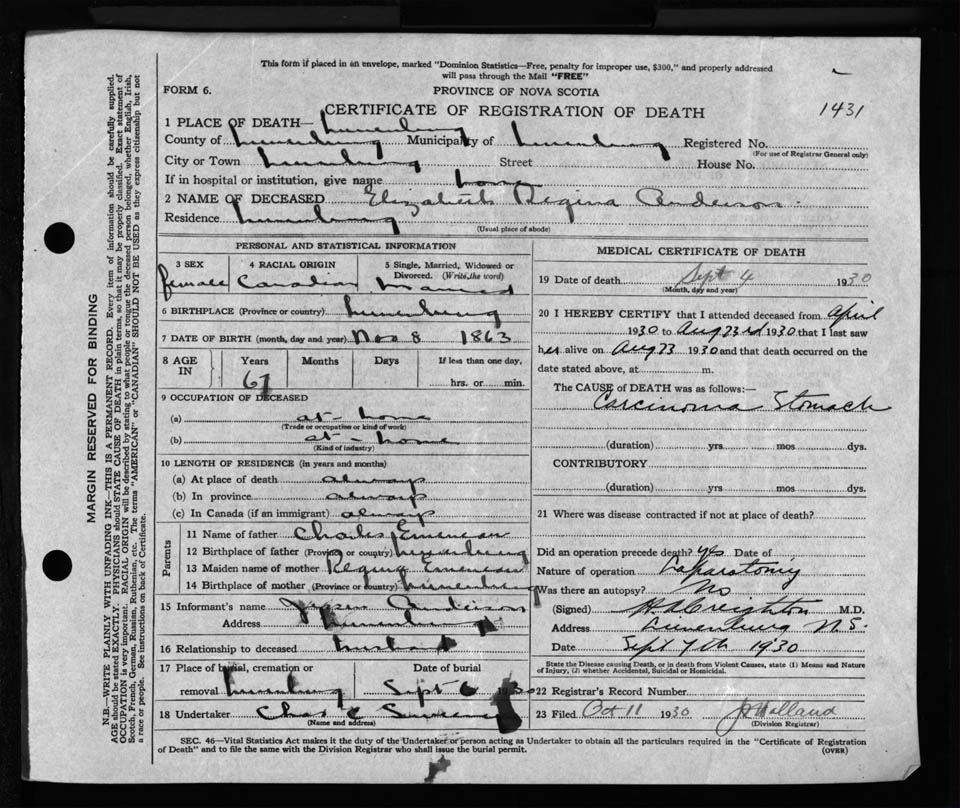 This form if placed in an envelope, marked "Dominion Statistics—Free, penalty for improper use, $300," and properly addressed
will pass through the Mail "FREE"
FORM 6.
PROVINCE OF NOVA SCOTIA
CERTIFICATE OF REGISTRATION OF DEATH
1431
1 PLACE OF DEATH— Lunenburg
County of Lunenburg Municipality of Lunenburg Registered No.
(For use of Registrar General only)
City or Town Lunenburg Street House No.
If in hospital or institution, give name home
2 NAME OF DECEASED Elizabeth Regina Anderson
Residence Lunenburg
(Usual place of abode)
PERSONAL AND STATISTICAL INFORMATION
3 SEX 4 RACIAL ORIGIN 5 Single, Married, Widowed or Divorced. (Write the word)
female Canadian married
6 BIRTHPLACE (Province or country) Lunenburg
7 DATE OF BIRTH (month, day and year) Nov 8 1863
8 AGE IN Years Months Days If less than one day,
67 hrs. or min.
9 OCCUPATION OF DECEASED
(a) at - home
(Trade or occupation or kind of work)
(b) at - home
(Kind of industry)
10 LENGTH OF RESIDENCE (in years and months)
(a) At place of death always
(b) In province always
(c) In Canada (if an immigrant) always
Parents
11 Name of father Charles
12 Birthplace of father (Province or country) Lunenburg
13 Maiden name of mother Regina
14 Birthplace of mother (Province or country) Lunenburg
15 Informant's name Anderson
Address Lunenburg
16 Relationship to deceased husband
17 Place of burial, cremation or removal Lunenburg
Date of burial Sept 6 1930
18 Undertaker Chas
(Name and address)
MEDICAL CERTIFICATE OF DEATH
19 Date of death Sept 4 1930
(Month, day and year)
20 I HEREBY CERTIFY that I attended deceased from April
1930 to Aug 23rd 1930 that I last saw
her alive on Aug 23 1930 and that death occurred on the
date stated above, at m.
The CAUSE of DEATH was as follows:—
Carcinoma Stomach
(duration) yrs mos dys.
CONTRIBUTORY
(duration) yrs. mos dys.
21 Where was disease contracted if not at place of death?
Did an operation precede death? yes Date of
Nature of operation Laparotomy
Was there an autopsy? No
(Signed) Creighton M.D.
Address Lunenburg N.S.
Date Sept 7th 1930
State the Disease causing Death, or in death from Violent Causes, state (1) Means and Nature
of Injury, (2) whether Accidental, Suicidal or Homicidal.
22 Registrar's Record Number
23 Filed Oct 11 1930 Holland
(Division Registrar)
SEC. 46—Vital Statistics Act makes it the duty of the Undertaker or person acting as Undertaker to obtain all the particulars required in the "Certificate of Registration
of Death" and to file the same with the Division Registrar who shall issue the burial permit.
(OVER)
MARGIN RESERVED FOR BINDING
N.B.—WRITE PLAINLY WITH UNFADING INK—THIS IS A PERMANENT RECORD. Every item of information should be carefully supplied.
AGE should be stated EXACTLY. PHYSICIANS should STATE CAUSE OF DEATH in plain terms, so that it may be properly classified. Exact statement of
OCCUPATION is very important. RACIAL ORIGIN will be described by stating to what people or tongue the deceased person belonged, whether English, Irish,
Scotch, French, German, Russian, Ruthenian, etc. The terms "AMERICAN" or "CANADIAN" SHOULD NOT BE USED as they express citizenship but not
a race or people. See instructions on back of Certificate.